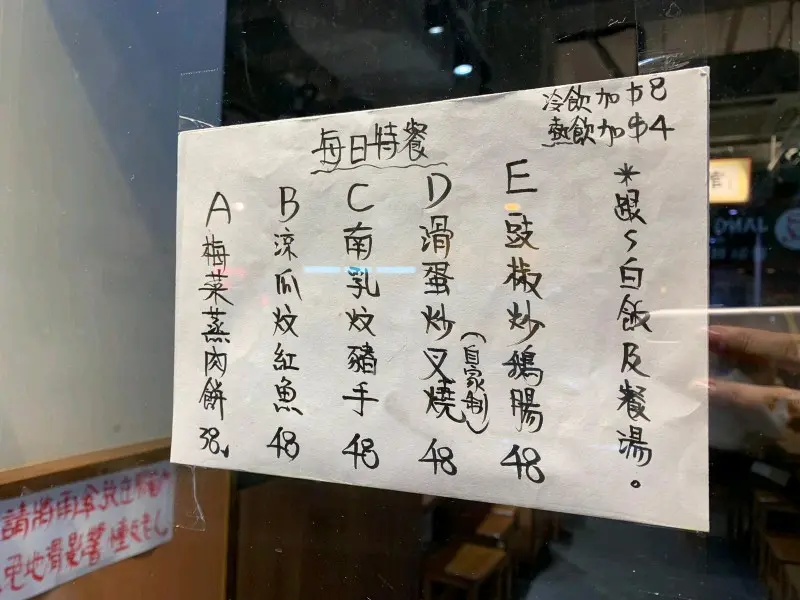 每日特餐
冷飲加$8
熱飲加$4
A 梅菜蒸肉餅 38
B 涼瓜炆紅魚 48
C 南乳炆豬手 48
D 滑蛋炒叉燒 48
(自家制)
E 豉椒炒鵝腸 48
*跟 白飯及餐湯。
請將雨傘放在
免地滑影響